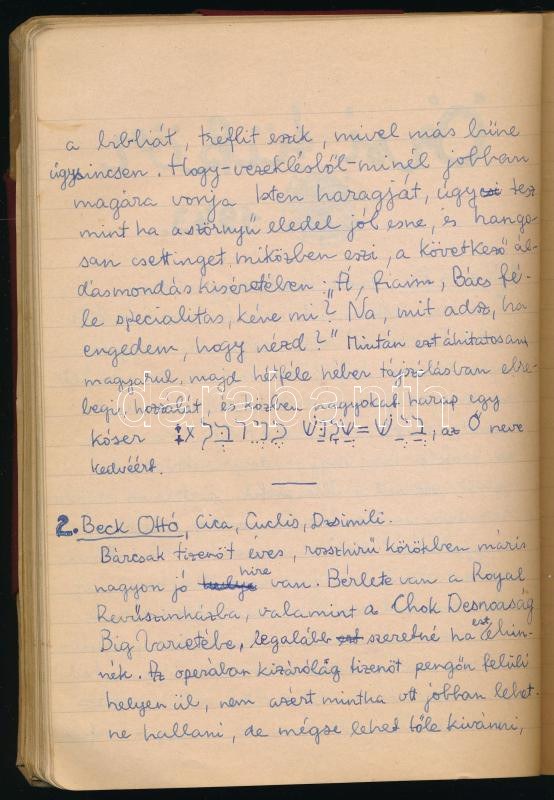 a bibliát, tréflit eszik, mivel más bűne
úgysincsen. Hogy-vezeklésből-minél jobban
magára vonja Isten haragját, úgy tesz
mint ha a szörnyű eledel jól esne, és hango-
san csettinget, miközben eszi, a következő ál-
dásmondás kíséretében: "Á, fiaim, Bács fé-
le specialitás, kéne mi? Na, mit adsz, ha
engedem, hogy nézd?" Miután ezt áhitatosan
magyarul, majd hétféle héber tájszólásban elre-
begi, hozzálát, és közben nagyokat harap egy
kóser az Ő neve
kedvéért.
2. Beck Ottó, Cica, Cuclis, Dzsimili.
Bárcsak tizenöt éves, rosszhirű körökben máris
nagyon jó hire van. Bérlete van a Royal
Revűszinházba, valamint a Chok Desnoaság
Big Varietébe, legalább szeretné ha ezt elhin-
nék. Az operában kizárólag tizenöt pengőn felüli
helyen ül, nem azért mintha ott jobban lehet-
ne hallani, de mégse lehet tőle kivánni,
darabanth